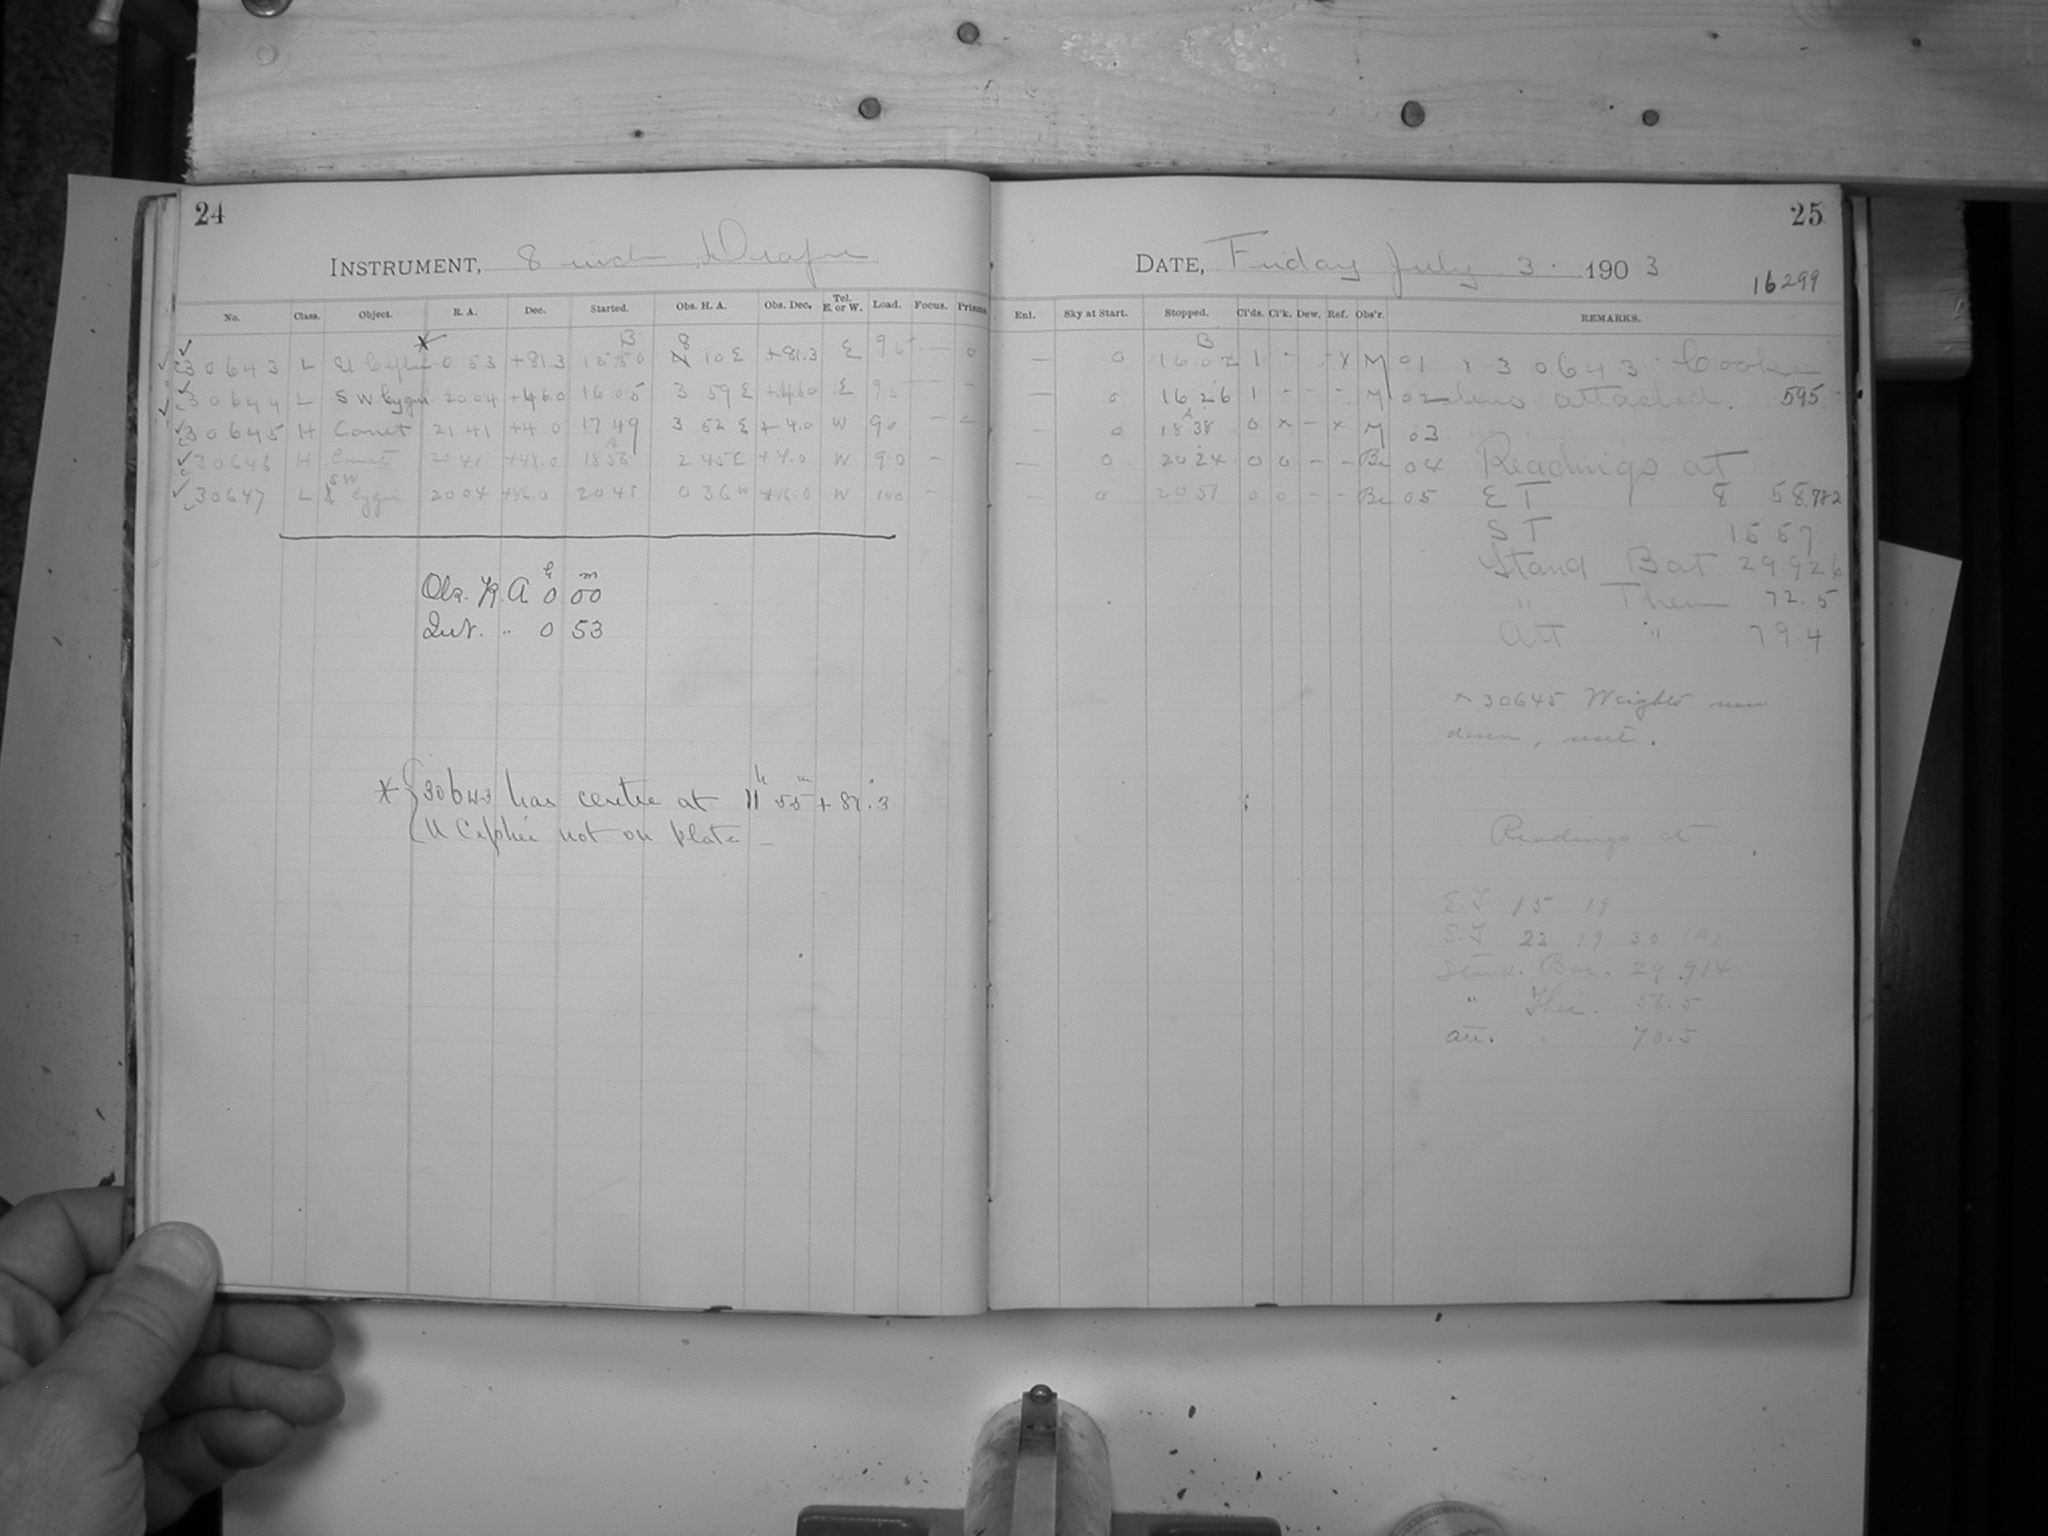 24
INSTRUMENT, 8 inch Draper
No. Class. Object. R. A. Dec. Started. Obs. H. A. Obs. Dec. Tel. E. or W. Load. Focus. Prisms.
30643 L U Cephei 0 53 +81.3 1550 8 10 E +81.3 E 90 — 0
30644 L SW Cygni 2004 +46.0 1605 3 59 E +46.0 E 90 — —
30645 H Comet 21 41 +4.0 1749 3 52 E +4.0 W 90 —
30646 H Comet 21 41 +4.0 1856 2 45 E +4.0 W 90 —
30647 L SW Cygni 2004 +46.0 2041 0 36 W +46.0 W 100 —
Obs. R. A 0 h 00 m
Int. " 0 53
* { 30643 has centre at 11 h 55 m + 81°.3
U Cephei not on plate —
25
DATE, Friday July 3. 1903
16299
Enl. Sky at Start. Stopped. Cl'ds. Cl'k. Dew. Ref. Obs'r. REMARKS.
— 0 16 02 1 - - x M 01 x 30643 Cooke
— 0 16 26 1 - - - M 02 lens attached. 595
— 0 18 38 0 x - x M 03
— 0 20 24 0 0 - - Be 04 Readings at
— 0 20 51 0 0 - - Be 05 E T 8 58 782
S T 15 57
Stand Bat 29.926
" Them 72.5
Att " 79.4
x 30645 Weights run
down, reset.
Readings at
E.T 15 19
S.T 22 19 30 (A)
Stand. Bar. 29.914
" Ther. 56.5
att. " 70.5